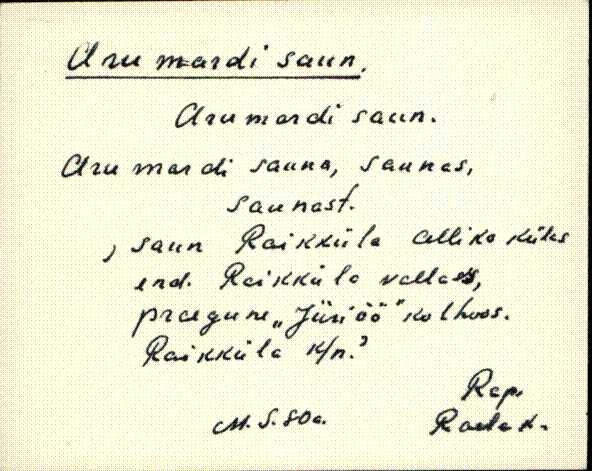 Aru mardi saun.
Aru mardi saun.
Aru mardi sauna, saunas,
saunast.
, saun Raikküla Alliko külas
end. Raikküla vallas,
praegune „Jüriöö" kolhoos.
Raikküla k/n.'
Rap.
M. S. 80a.